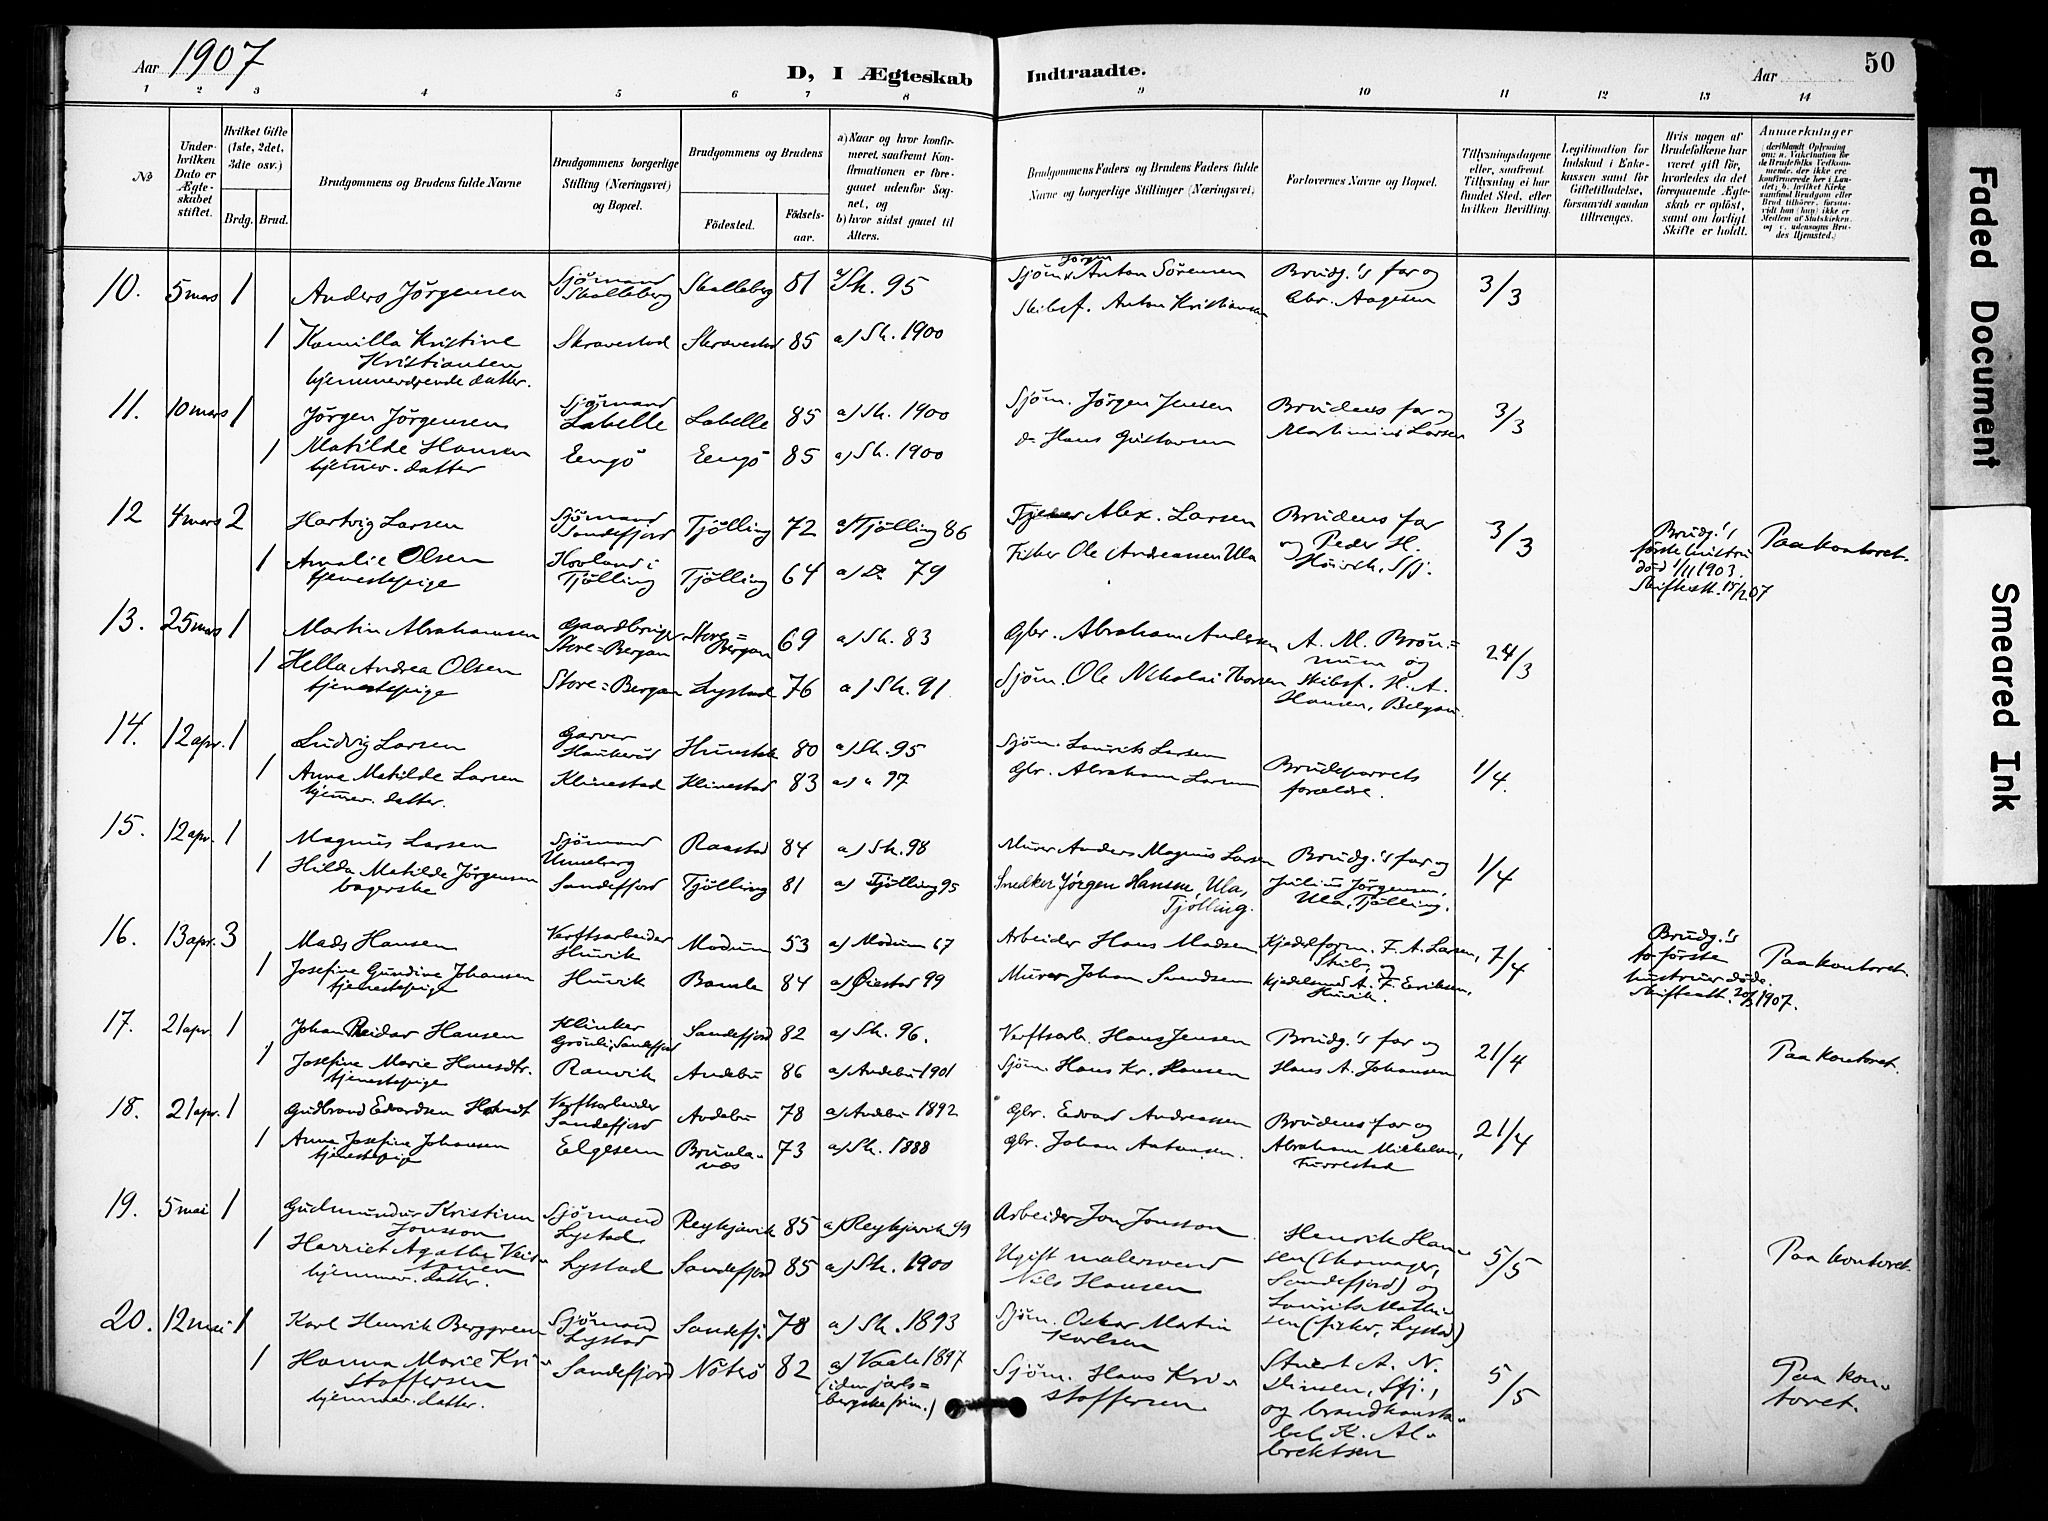 Aar 1907
D, I Ægteskab Indtraadte.
Aar
50
1 2 3 4 5 6 7 8 9 10 11 12 13 14
No
Under-
hvilken
Dato er
Ægte-
skabet
stiftet.
Hvilket Gifte
(1ste, 2det,
3die osv.)
Brdg. Brud.
Brudgommens og Brudens fulde Navne
Brudgommens borgerlige
Stilling (Næringsvei)
og Bopæl.
Brudgommens og Brudens
Fødested.
Fødsels-
aar.
a) Naar og hvor konfir-
meret, saafremt Kon-
firmationen er fore-
gaaet udenfor Sog-
net, og
b) hvor sidst gaaet til
Alters.
Brudgommens Faders og Brudens Faders fulde
Navne og borgerlige Stillinger (Næringsvei)
Forlovernes Navne og Bopæl.
Tillysningsdagene
eller, saafremt
Tillysning ei har
fundet Sted, efter
hvilken Bevilling.
Legitimation for
Indskud i Enke-
kassen samt for
Giftetilladelse,
forsaavidt saadan
tiltrænges.
Hvis nogen af
Brudefolkene har
været gift før,
hvorledes da det
foregaaende Ægte-
skab er opløst,
samt om lovligt
Skifte er holdt.
Anmærkninger
10. 5 mars 1 Anders Jörgensen Sjömand Skalleberg Skalleberg 81 Sh. 95 Sjöm. Jörgen Anton Sörensen Brudg.'s far og Gbr. Aagesen 3/3
1 Kamilla Kristine Kristiansen hjemmeværende datter. Skravestad Skravestad 85 a) Sh. 1900 Skibsf. Anton Kristiansen
11. 10 mars 1 Jörgen Jörgensen Sjömand Labelle Labelle 85 a) Sh. 1900 Sjöm. Jörgen Jensen Brudens far og Martinius Larsen 3/3
1 Matilde Hansen hjemmev. datter Eengö Eengö 85 a) Sh. 1900 do Hans Gustavsen
12 4 mars 2 Hartvig Larsen Sjömand Sandefjord Tjölling 72 a) Tjölling 86 Alex. Larsen Brudens far og Peder H. 3/3 Brudg.'s første hustru död 1/11 1903. Skifteatt. 15/2 07 Paa kontoret.
1 Amalie Olsen tjenestepige Hovland i Tjölling Tjölling 64 a) Do 79 Fisker Ole Andreassen Ula
13. 25 mars 1 Martin Abrahamsen Gaardbruger Store=Bergan Store=Bergan 69 a) Sh. 83 Gbr. Abraham Andersen A. M. Brön=num og Skibsf. H. A. Hansen, Bergan. 24/3
1 Hella Andrea Olsen tjenestepige Store=Bergan Lystad 76 a) Sh. 91. Sjöm. Ole Nikolai Thorsen
14. 12 apr. 1 Ludvig Larsen Garver Haukerød Hunstok 80 a) Sh. 95 Sjöm. Laurits Larsen Brudeparrets forældre. 1/4.
1 Anna Matilde Larsen hjemmev. datter. Klinestad Klinestad 83 a) " 97 Gbr. Abraham Larsen
15. 12 apr. 1 Magnus Larsen Sjömand Unneberg Raastad 84 a) Sh. 98 Murer Anders Magnus Larsen Brudg.'s far og Julius Jörgensen, Ula, Tjölling. 1/4
1 Hilda Matilde Jörgensen bagerske Sandefjord Tjölling 81 a) Tjölling 95 Snedker Jörgen Hansen, Ula, Tjölling.
16. 13 apr. 3 Mads Hansen Verftsarbeider Huvik Modum 53 a) Modum 67 Arbeider Hans Madsen Kjedelform. F. A. Larsen, og Kjedelsmed A. F. Eriksen, Huvik. 7/4 Brudg.'s to første hustruer döde. Skifteatt. 1907. Paa kontoret.
1 Josefine Gundine Johansen tjenestepige Huvik Bamle 84 a) Øiestad 99 Murer Johan Svendsen
17. 21 apr. 1 Johan Reidar Hansen Klinker Grönli, Sandefjord Sandefjord 82 a) Sh. 96. Verftsarb. Hans Jensen Brudg.'s far og Hans A. Johansen 21/4 Paa kontoret.
1 Josefine Marie Hansdtr. tjenestepige Ranvik Andebu 86 a) Andebu 1901 Sjöm. Hans Kr. Hansen
18. 21 apr. 1 Gudbrand Edvardsen Verftsarbeider Sandefjord Andebu 78 a) Andebu 1892 Gbr. Edvard Andreassen Brudens far og Abraham Mikkelsen, Furrestad 21/4
1 Anna Josefine Johansen tjenestepige Elgesem Brunla-næs 73 a) Sh. 1888 Gbr. Johan Antonsen.
19. 5 mai 1 Gudmundur Kristinn Jonsson Sjömand Lystad Reykjavik 85 a) Reykjavik 99 Arbeider Jon Jonsson Henrik Han-sen (skomager, Sandefjord) og Laurits Mathi-sen (fisker, Lystad) 5/5 Paa kontoret.
1 Harriet Agathe hjemmev. datter. Lystad Sandefjord 85 a) Sh. 1900 Ugift malersvend Nils Hansen
20. 12 mai 1 Karl Henrik Berggren Sjömand Lystad Sandefj. 78 a) Sh. 1893 Sjöm. Oskar Martin Karlsen Stuert A. N. Dinsen, Sfj., og brandkonsta-bel K. Al-brektsen 5/5 Paa kon-toret.
1 Hanna Marie Kri-stoffersen hjemmev. datter. Sandefjord Nöterö 82 a) Vaale 1897 (i den jarls=bergske frim.) Sjöm. Hans Kri-stoffersen
Faded Document
Smeared Ink